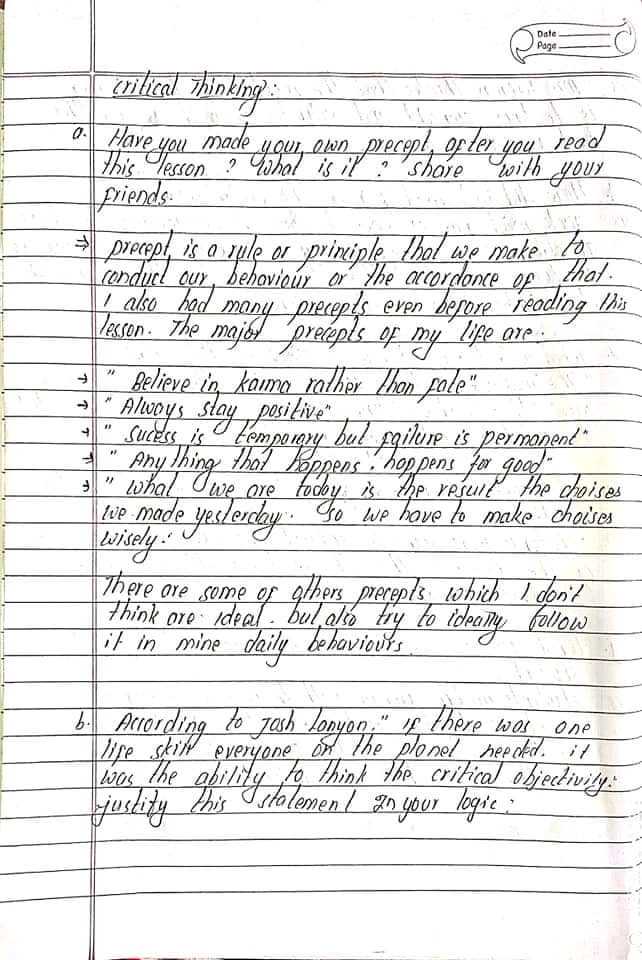 Date
Page
Critical Thinking:
a. Have you made your own precept after you read
this lesson ? What is it ? Share with your
friends.
⇒ precept is a rule or principle that we make to
conduct our behaviour or the accordance of that.
I also had many precepts even before reading this
lesson. The major precepts of my life are.
→ " Believe in karma rather than fate"
→ "Always stay positive"
→ " Sucess is temporary but failure is permanent"
→ " Anything that happens, happens for good"
→ " What we are today is the result the choises
we made yesterday. So we have to make choises
wisely."
There are some of others precepts which I don't
think are ideal. but also try to ideally follow
it in mine daily behaviours.
b. According to Josh Lanyon." if there was one
life skill everyone on the planet needed. it
was the ability to think the critical objectivity:
justify this statement In your logic: